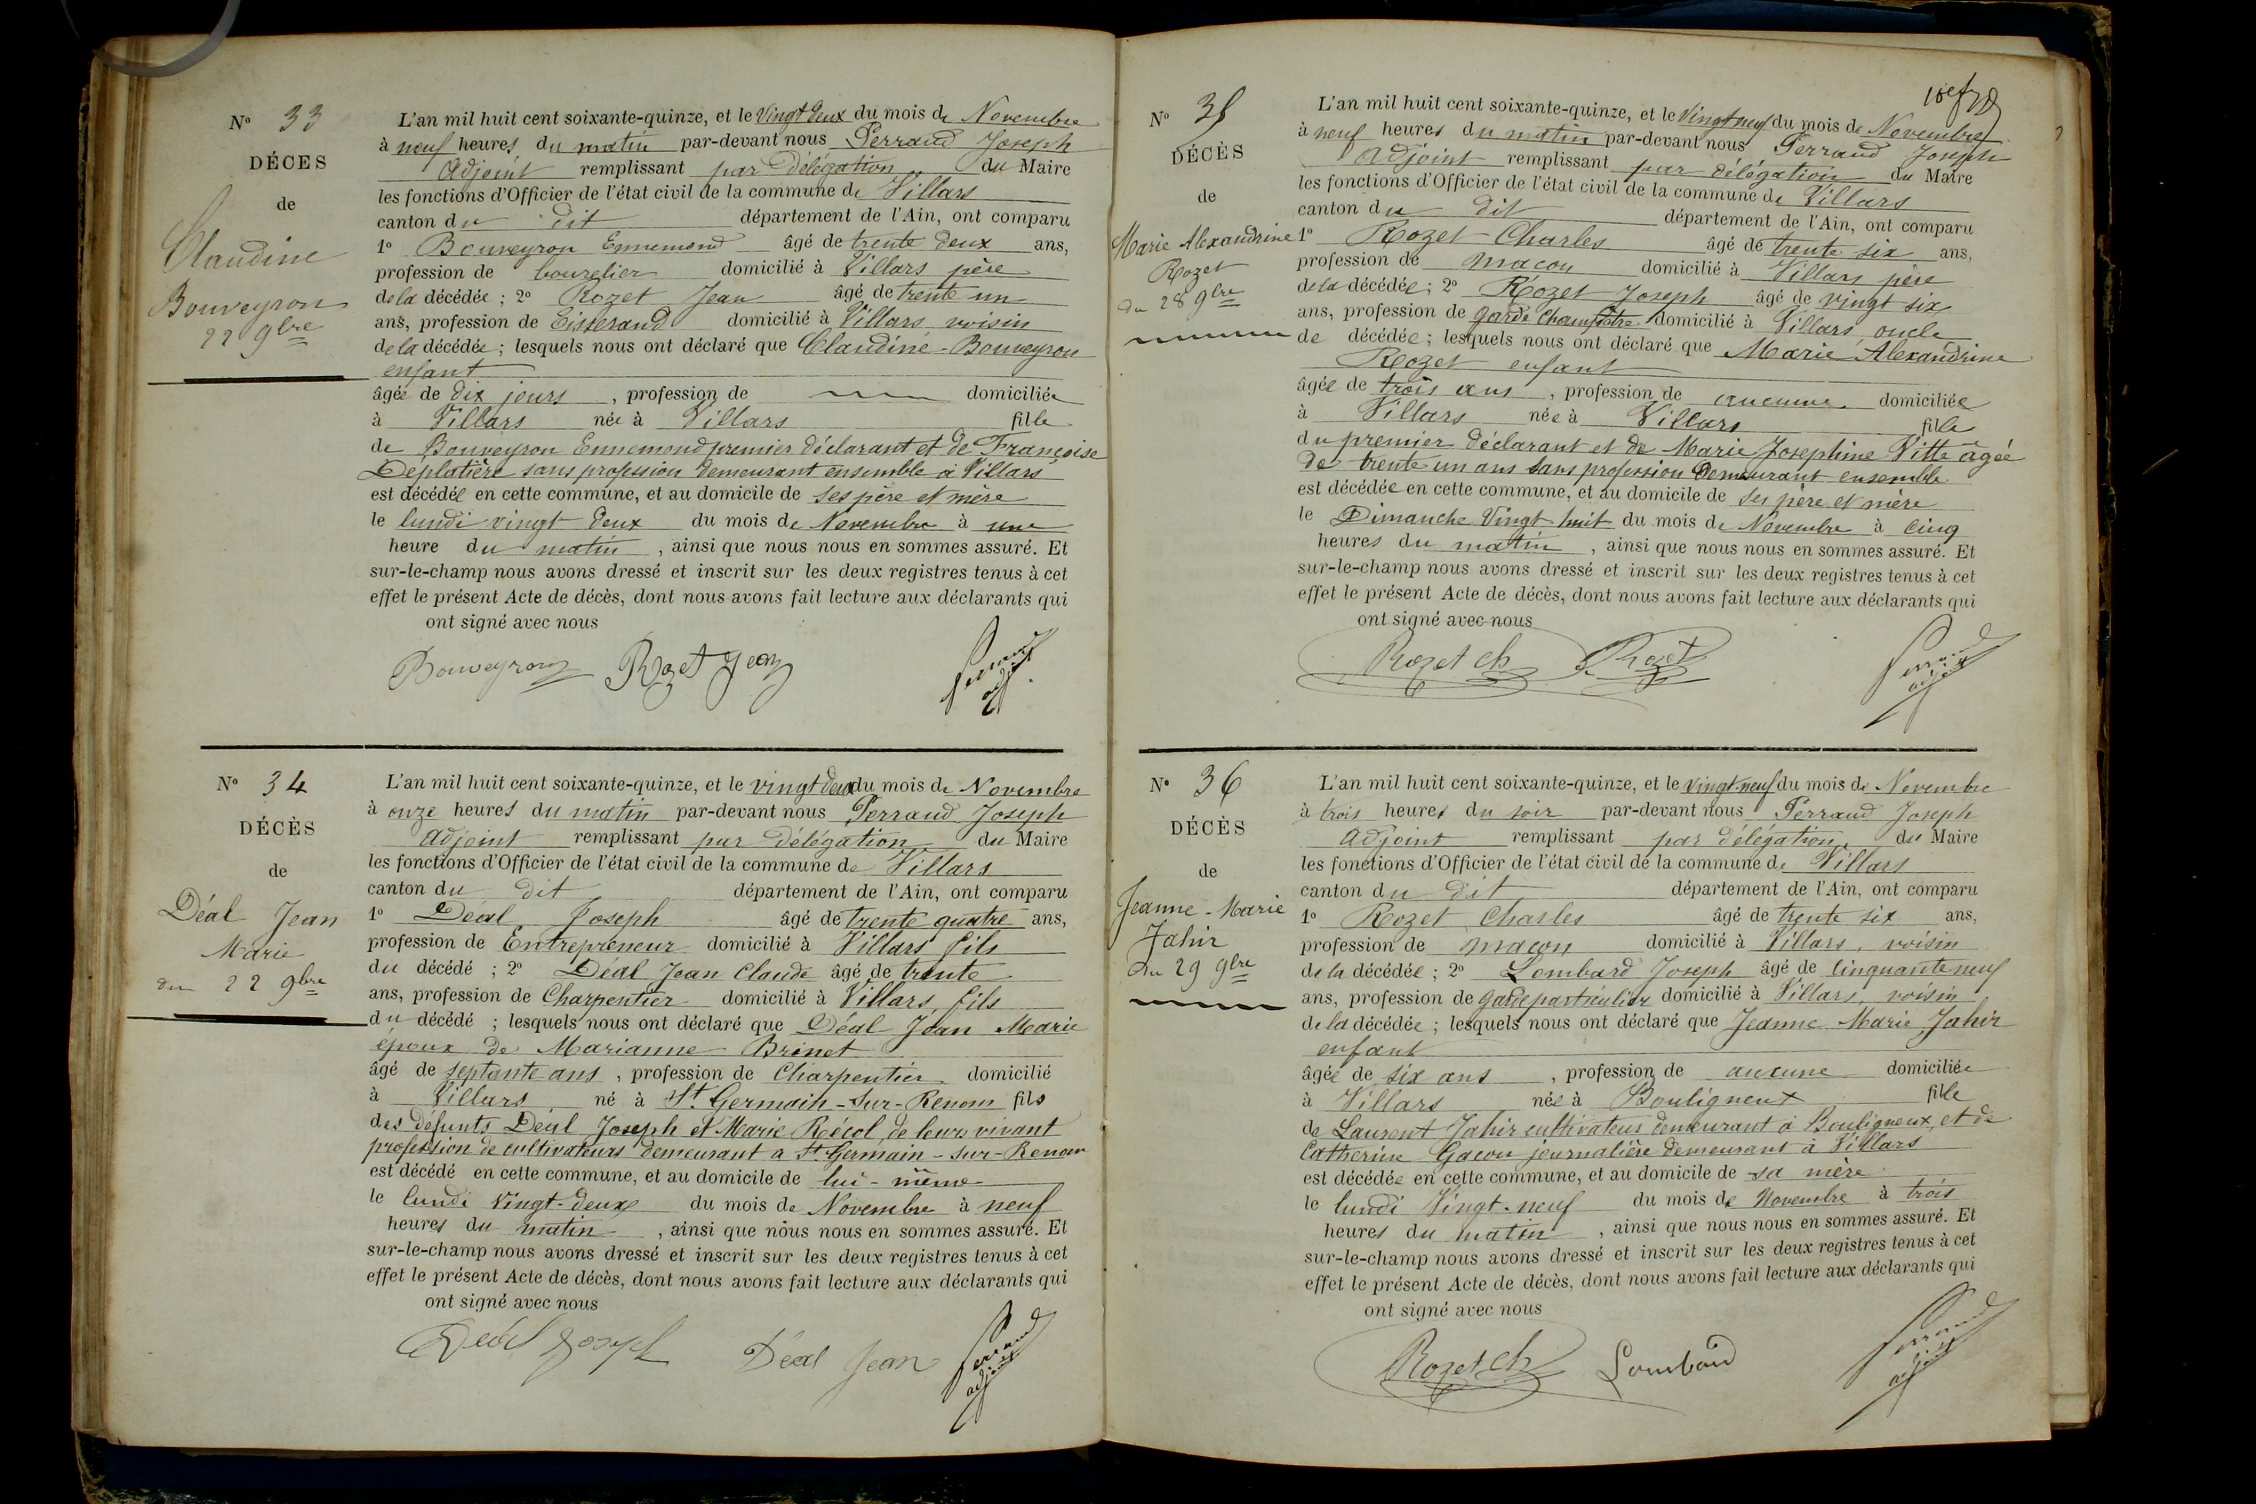 N° 33
DÉCES
de
Claudine
Bouveyron
22 9bre
L'an mil huit cent soixante-quinze, et le vingt deux du mois de Novembre
à neuf heures du matin par-devant nous Perraud Joseph
adjoint remplissant par délégation du Maire
les fonctions d'Officier de l'état civil de la commune de Villars
canton du dit département de l'Ain, ont comparu
1° Bouveyron Ennemond âgé de trente deux ans,
profession de bourelier domicilié à Villars père
de la décédée ; 2° Rozet Jean âgé de trente un
ans, profession de Tisserand domicilié à Villars, voisin
de la décédée ; lesquels nous ont déclaré que Claudine Bouveyron
enfant
âgée de dix jours , profession de domiciliée
à Villars née à Villars fille
de Bouveyron Ennemond premier déclarant et de Françoise
Deplatière sans profession demeurant ensemble à Villars
est décédée en cette commune, et au domicile de ses père et mère
le lundi vingt deux du mois de Novembre à une
heure du matin , ainsi que nous nous en sommes assuré. Et
sur-le-champ nous avons dressé et inscrit sur les deux registres tenus à cet
effet le présent Acte de décès, dont nous avons fait lecture aux déclarants qui
ont signé avec nous
Bouveyron Rozet Jean Perraud adj
N° 34
DÉCÈS
de
Déal Jean
Marie
du 22 9bre
L'an mil huit cent soixante-quinze, et le vingt deux du mois de Novembre
à onze heures du matin par-devant nous Perraud Joseph
adjoint remplissant par délégation du Maire
les fonctions d'Officier de l'état civil de la commune de Villars
canton du dit département de l'Ain, ont comparu
1° Déal Joseph âgé de trente quatre ans,
profession de Entrepreneur domicilié à Villars fils
du décédé ; 2° Déal Jean Claude âgé de trente
ans, profession de Charpentier domicilié à Villars, fils
du décédé ; lesquels nous ont déclaré que Déal Jean Marie
époux de Marianne Brinet
âgé de septante ans , profession de Charpentier domicilié
à Villars né à St Germain-sur-Renom fils
des défunts Déal Joseph et Marie Récol, de leurs vivant
profession de cultivateurs demeurant a St Germain-sur-Renom
est décédé en cette commune, et au domicile de lui-même
le lundi vingt-deux du mois de Novembre à neuf
heures du matin , ainsi que nous nous en sommes assuré. Et
sur-le-champ nous avons dressé et inscrit sur les deux registres tenus à cet
effet le présent Acte de décès, dont nous avons fait lecture aux déclarants qui
ont signé avec nous
Déal Joseph Déal Jean Perraud adjoint
N° 35
DÉCÈS
de
Marie Alexandrine
Rozet
du 28 9bre
L'an mil huit cent soixante-quinze, et le vingt neuf du mois de Novembre
à neuf heures du matin par-devant nous Perraud Joseph
adjoint remplissant par délégation du Maire
les fonctions d'Officier de l'état civil de la commune de Villars
canton du dit département de l'Ain, ont comparu
1° Rozet Charles âgé de trente six ans,
profession de maçon domicilié à Villars père
de la décédée ; 2° Rozet Joseph âgé de vingt six
ans, profession de garde champêtre domicilié à Villars, oncle
de décédée ; lesquels nous ont déclaré que Marie Alexandrine
Rozet enfant
âgée de trois ans , profession de aucune domiciliée
à Villars née à Villars fille
du premier déclarant et de Marie Josephine Vitte âgée
de trente un ans sans profession demeurant ensemble
est décédée en cette commune, et au domicile de ses père et mère
le Dimanche Vingt huit du mois de Novembre à cinq
heures du matin , ainsi que nous nous en sommes assuré. Et
sur-le-champ nous avons dressé et inscrit sur les deux registres tenus à cet
effet le présent Acte de décès, dont nous avons fait lecture aux déclarants qui
ont signé avec nous
Rozet Ch Rozet Perraud adj
N° 36
DÉCÈS
de
Jeanne-Marie
Jahir
du 29 9bre
L'an mil huit cent soixante-quinze, et le vingt-neuf du mois de Novembre
à trois heures du soir par-devant nous Perraud Joseph
adjoint remplissant par délégation du Maire
les fonctions d'Officier de l'état civil de la commune de Villars
canton du dit département de l'Ain, ont comparu
1° Rozet Charles âgé de trente six ans,
profession de maçon domicilié à Villars, voisin
de la décédée ; 2° Lombard Joseph âgé de cinquante neuf
ans, profession de garde particulier domicilié à Villars, voisin
de la décédée ; lesquels nous ont déclaré que Jeanne Marie Jahir
enfant
âgée de six ans , profession de aucune domiciliée
à Villars née à Bouligneux fille
de Laurent Jahir cultivateur demeurant à Bouligneux, et de
Catherine Gacon journalière demeurant à Villars
est décédée en cette commune, et au domicile de sa mère
le lundi Vingt-neuf du mois de Novembre à trois
heures du matin , ainsi que nous nous en sommes assuré. Et
sur-le-champ nous avons dressé et inscrit sur les deux registres tenus à cet
effet le présent Acte de décès, dont nous avons fait lecture aux déclarants qui
ont signé avec nous
Rozet Ch Lombard Perraud adj